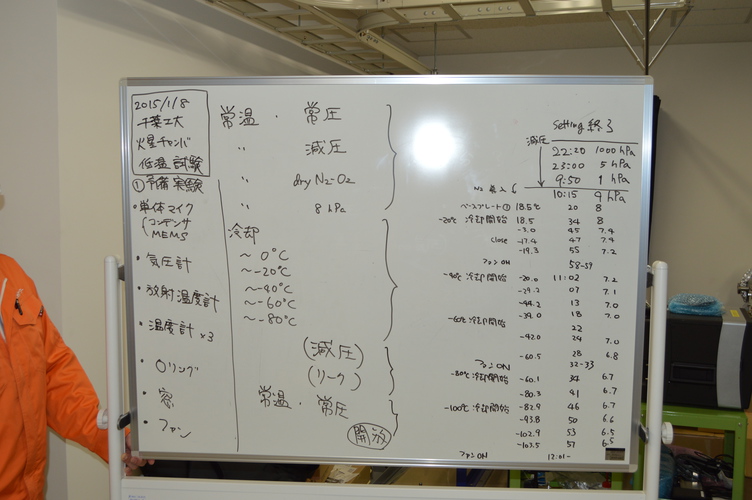 2015/1/8
千葉工大
火星チャンバ
低温試験
①予備実験
・単体マイク
コンデンサ
MEMS
・気圧計
・放射温度計
・温度計×3
・Oリング
・窓
・ファン
常温・常圧
〃 減圧
〃 dry N2-O2
〃 8 hPa
冷却
~ 0℃
~ -20℃
~ -40℃
~ -60℃
~ -80℃
(減圧)
(リーク)
常温・常圧
開放
setting 終了
減圧 22:20 1000 hPa
23:00 5 hPa
9:50 1 hPa
N2 導入 6 10:15 9 hPa
ベースプレート① 18.5℃ 20 8
-20℃ 冷却開始 18.5 34 8
-3.0 45 7.4
close -17.4 47 7.4
-19.3 55 7.2
ファンON 58-59
-40℃ 冷却開始 -20.0 11:02 7.2
07 7.1
-44.2 13 7.0
-39.0 18 7.0
-60℃ 冷却開始 22
-42.0 24 7.0
-60.5 28 6.8
ファンON 32-33
-80℃ 冷却開始 -60.1 34 6.7
-80.3 41 6.7
-100℃ 冷却開始 -82.9 46 6.7
-93.8 50 6.6
-102.9 53 6.5
-103.5 57 6.5
ファンON 12:01-